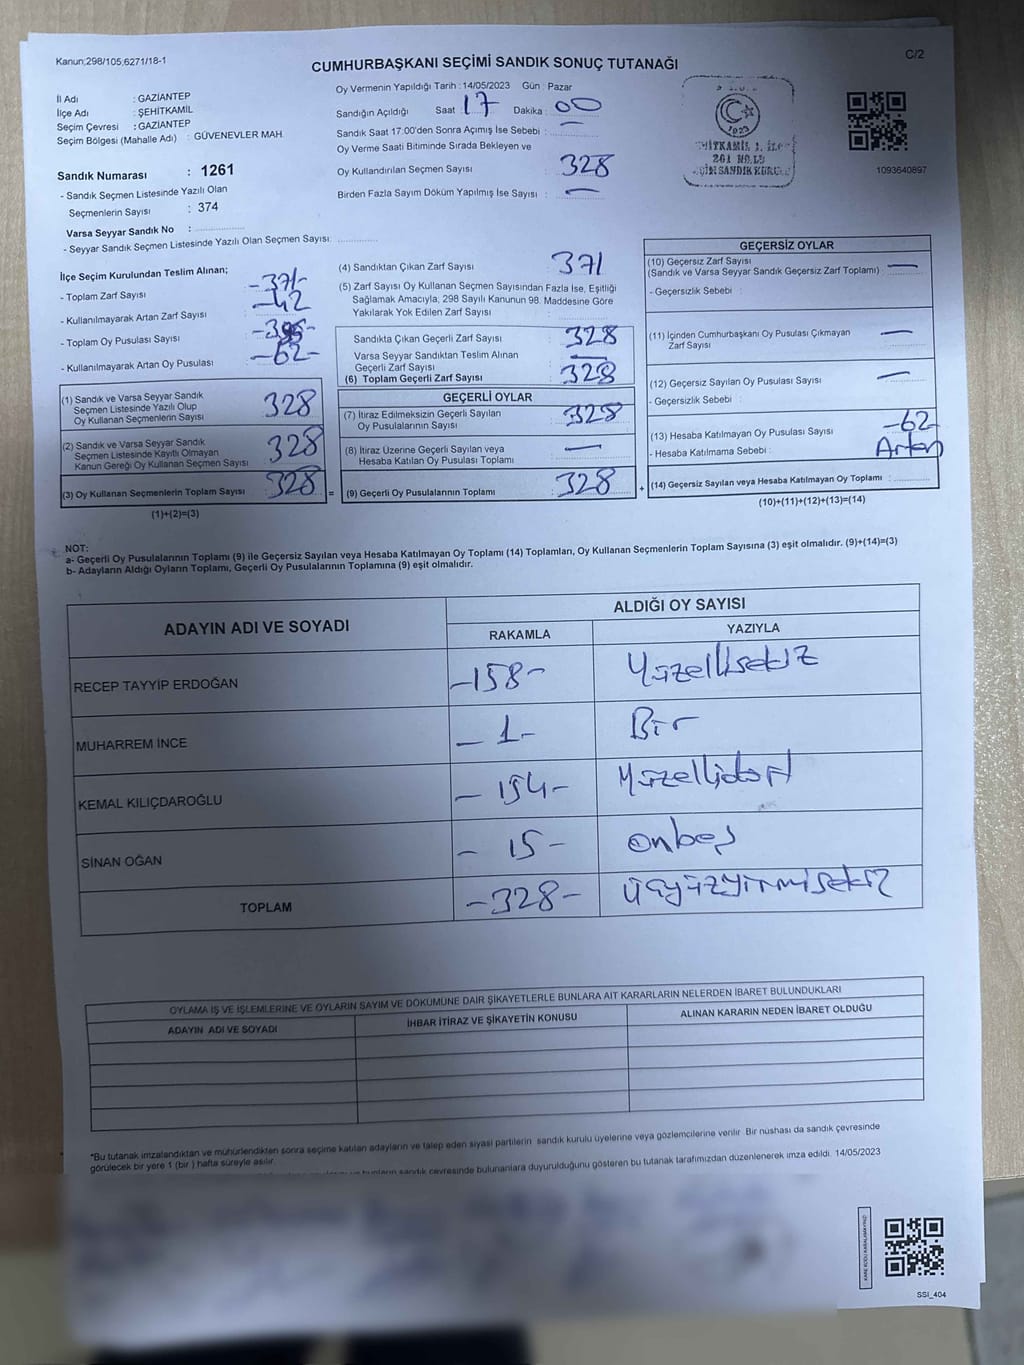 Kanun;298/105;6271/18-1
C/2
CUMHURBAŞKANI SEÇİMİ SANDIK SONUÇ TUTANAĞI
İl Adı : GAZİANTEP
İlçe Adı : ŞEHİTKAMİL
Seçim Çevresi : GAZİANTEP
Seçim Bölgesi (Mahalle Adı) : GÜVENEVLER MAH.
Sandık Numarası : 1261
- Sandık Seçmen Listesinde Yazılı Olan
Seçmenlerin Sayısı : 374
Varsa Seyyar Sandık No :
- Seyyar Sandık Seçmen Listesinde Yazılı Olan Seçmen Sayısı:
Oy Vermenin Yapıldığı Tarih : 14/05/2023 Gün : Pazar
Sandığın Açıldığı Saat 17 Dakika : 00
Sandık Saat 17:00'den Sonra Açımış İse Sebebi : —
Oy Verme Saati Bitiminde Sırada Bekleyen ve
Oy Kullandırılan Seçmen Sayısı : 328
Birden Fazla Sayım Döküm Yapılmış İse Sayısı : —
1923
1093640897
İlçe Seçim Kurulundan Teslim Alınan;
- Toplam Zarf Sayısı : -371-
- Kullanılmayarak Artan Zarf Sayısı : -42
- Toplam Oy Pusulası Sayısı :
- Kullanılmayarak Artan Oy Pusulası : -62-
(1) Sandık ve Varsa Seyyar Sandık
Seçmen Listesinde Yazılı Olup
Oy Kullanan Seçmenlerin Sayısı : 328
(2) Sandık ve Varsa Seyyar Sandık
Seçmen Listesinde Kayıtlı Olmayan
Kanun Gereği Oy Kullanan Seçmen Sayısı : 328
(3) Oy Kullanan Seçmenlerin Toplam Sayısı : 328
(1)+(2)=(3)
=
(4) Sandıktan Çıkan Zarf Sayısı : 371
(5) Zarf Sayısı Oy Kullanan Seçmen Sayısından Fazla İse, Eşitliği
Sağlamak Amacıyla, 298 Sayılı Kanunun 98. Maddesine Göre
Yakılarak Yok Edilen Zarf Sayısı :
Sandıkta Çıkan Geçerli Zarf Sayısı : 328
Varsa Seyyar Sandıktan Teslim Alınan
Geçerli Zarf Sayısı : —
(6) Toplam Geçerli Zarf Sayısı : 328
GEÇERLİ OYLAR
(7) İtiraz Edilmeksizin Geçerli Sayılan
Oy Pusulalarının Sayısı : 328
(8) İtiraz Üzerine Geçerli Sayılan veya
Hesaba Katılan Oy Pusulası Toplamı : —
(9) Geçerli Oy Pusulalarının Toplamı : 328
+
GEÇERSİZ OYLAR
(10) Geçersiz Zarf Sayısı
(Sandık ve Varsa Seyyar Sandık Geçersiz Zarf Toplamı) : —
- Geçersizlik Sebebi :
(11) İçinden Cumhurbaşkanı Oy Pusulası Çıkmayan
Zarf Sayısı : —
(12) Geçersiz Sayılan Oy Pusulası Sayısı : —
- Geçersizlik Sebebi :
(13) Hesaba Katılmayan Oy Pusulası Sayısı : -62-
- Hesaba Katılmama Sebebi : Artan
(14) Geçersiz Sayılan veya Hesaba Katılmayan Oy Toplamı :
(10)+(11)+(12)+(13)=(14)
NOT:
a- Geçerli Oy Pusulalarının Toplamı (9) ile Geçersiz Sayılan veya Hesaba Katılmayan Oy Toplamı (14) Toplamları, Oy Kullanan Seçmenlerin Toplam Sayısına (3) eşit olmalıdır. (9)+(14)=(3)
b- Adayların Aldığı Oyların Toplamı, Geçerli Oy Pusulalarının Toplamına (9) eşit olmalıdır.
ADAYIN ADI VE SOYADI
ALDIĞI OY SAYISI
RAKAMLA YAZIYLA
RECEP TAYYİP ERDOĞAN -158- Yüzellisekiz
MUHARREM İNCE -1- Bir
KEMAL KILIÇDAROĞLU -154- Yüzellidört
SİNAN OĞAN -15- onbeş
TOPLAM -328- üçyüzyirmisekiz
OYLAMA İŞ VE İŞLEMLERİNE VE OYLARIN SAYIM VE DÖKÜMÜNE DAİR ŞİKAYETLERLE BUNLARA AİT KARARLARIN NELERDEN İBARET BULUNDUKLARI
ADAYIN ADI VE SOYADI İHBAR İTİRAZ VE ŞİKAYETİN KONUSU ALINAN KARARIN NEDEN İBARET OLDUĞU
*Bu tutanak imzalandıktan ve mühürlendikten sonra seçime katılan adayların ve talep eden siyasi partilerin sandık kurulu üyelerine veya gözlemcilerine verilir. Bir nüshası da sandık çevresinde
görülecek bir yere 1 (bir ) hafta süreyle asılır.
sandık çevresinde bulunanlara duyurulduğunu gösteren bu tutanak tarafımızdan düzenlenerek imza edildi. 14/05/2023
SSI_404